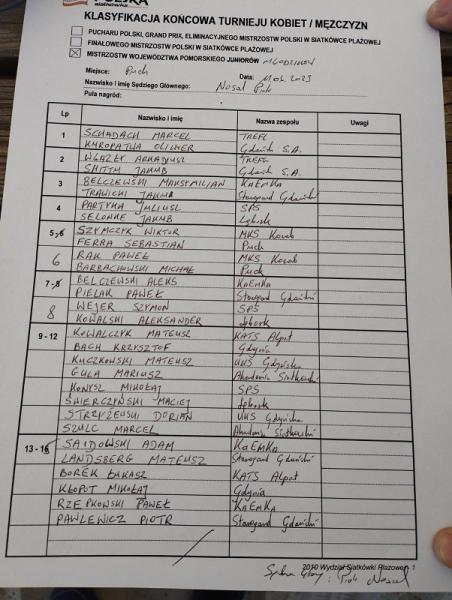 POLSKA
siatkówka
KLASYFIKACJA KOŃCOWA TURNIEJU KOBIET / MĘŻCZYZN
PUCHARU POLSKI, GRAND PRIX, ELIMINACYJNEGO MISTRZOSTW POLSKI W SIATKÓWCE PLAŻOWEJ
FINAŁOWEGO MISTRZOSTW POLSKI W SIATKÓWCE PLAŻOWEJ
MISTRZOSTW WOJEWÓDZTWA POMORSKIEGO JUNIORÓW MŁODZIKÓW
Miejsce: Puck Data: 2023
Nazwisko i imię Sędziego Głównego: Nosal Piotr
Pula nagród:
Lp Nazwisko i imię Nazwa zespołu Uwagi
1 SCHADACH MARCEL TREFL
KUROPATWA OLIWIER Gdańsk S.A.
2 WGAZŁY ARKADIUSZ TREFL
SMITH JAKUB Gdańsk S.A.
3 BELCZEWSKI MAKSYMILIAN KAEMKA
TRAWICKI JAKUB Starogard Gdański
4 PARTYKA JULIUSZ SPS
SELONKE JAKUB Lębork
5-6 SZYMCZYK WIKTOR MKS
FERRA SEBASTIAN Puck
6 RAK PAWEŁ MKS
BARBACHOWSKI MICHAŁ Puck
7-8 BELCZEWSKI ALEKS KAEMKA
PIELAK PAWEŁ Starogard Gdański
8 WEJER SZYMON SPS
KOWALSKI ALEKSANDER Lębork
9-12 KOWALCZYK MATEUSZ KATS Alpat
BACH KRZYSZTOF Gdynia
KUCZKOWSKI MATEUSZ UKS Gdyńska
GULA MARIUSZ Akademia Siatkówki
KONYSZ MIKOŁAJ SPS
ŚWIERCZYŃSKI MACIEJ Lębork
STRZYŻEWSKI DORIAN UKS Gdyńska
SZULC MARCEL Akademia Siatkówki
13-16 SAIDOWSKI ADAM KAEMKA
LANDSBERG MATEUSZ Starogard Gdański
BOREK ŁUKASZ KATS Alpat
KŁOPOT MIKOŁAJ Gdynia
RZEPKOWSKI PAWEŁ KAEMKA
PAWLEWICZ PIOTR Starogard Gdański
2010 Wydział Siatkówki Plażowej 1
Sędzia Główny: Piotr Nosal